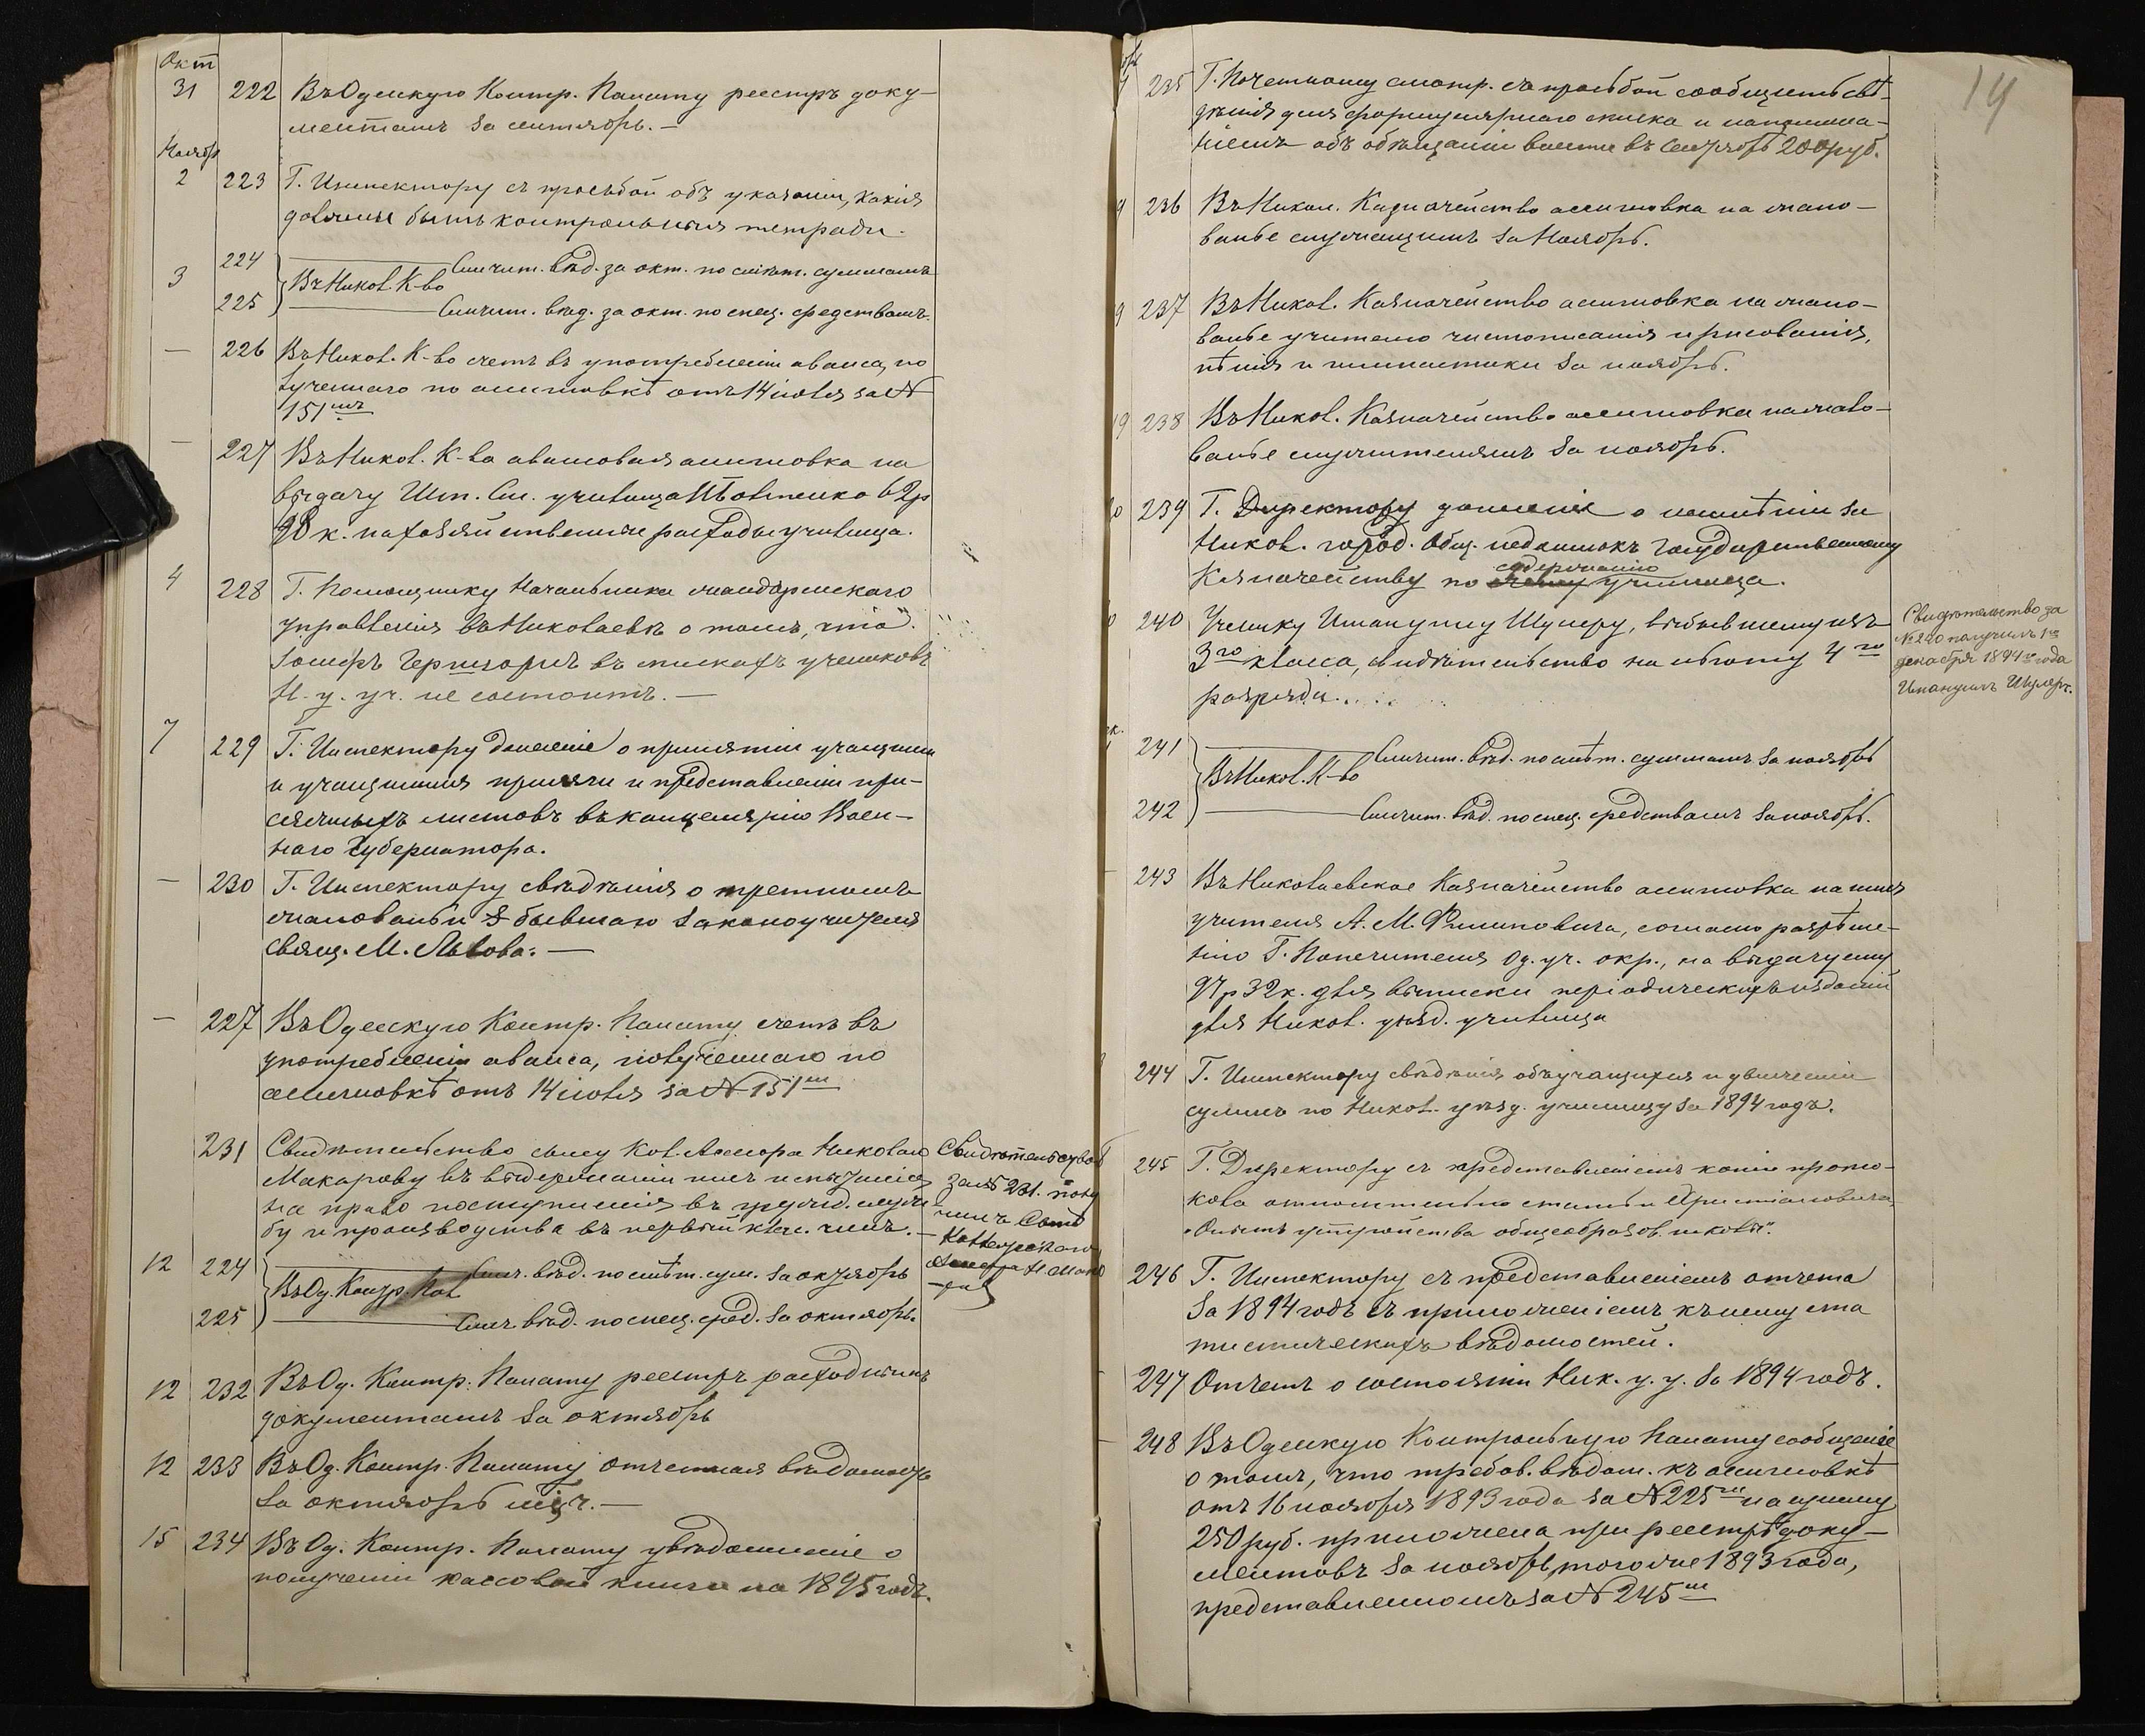 Окт
31 222 Въ Одескую Контр. Палату реестръ доку-
ментамъ за сентябрь. —
Ноябр
2 223 Г. Инспектору съ просьбой объ указаніи, какія
должны быть контрольныя тетради.
224 Смѣчит. вѣд. за окт. по смѣт. суммамъ
3 Въ Никол. К-во
225 Смѣчит. вѣд. за окт. по спец. средствамъ.
— 226 Въ Никол. К-во счетъ въ употребленіи аванса, по
лученнаго по ассигновкѣ отъ 14 іюля за N
151мъ
— 227 Въ Никол. К-ва авансовая ассигновка на
выдачу Шт. См. училища 62р
98 к. на хозяйственные расходы училища.
4 228 Г. Помощнику Начальника жандармскаго
управленія въ Николаевѣ о томъ, что
въ спискахъ учениковъ
Н. у. уч. не состоитъ. —
7 229 Г. Инспектору донесеніе о принятіи учащими
и учащимися присяги и представленіи при-
сяжныхъ листовъ въ канцелярію Воен-
наго Губернатора.
— 230 Г. Инспектору свѣдѣнія о третномъ
жалованьи бывшаго законоучителя
свящ. М. Львова. —
— 227 Въ Одесскую Контр. Палату счетъ въ
употребленіи аванса, полученнаго по
ассигновкѣ отъ 14 іюля за N 151мъ
231 Свидѣтельство сыну Кол. Асессора Николаю
Макарову въ выдержаніи имъ испытанія
на право поступленія въ гражд. служ
бу и производства въ первый клас. чинъ. —
Свидѣтельство
за № 231. полу
чилъ Сынъ
Коллежскаго
Асессора Н. Мака
ровъ
12 224 Смѣч. вѣд. по смѣт. сум. за октябрь
Въ Од. Контр. Пал
225 Смѣч. вѣд. по спец. сред. за октябрь.
12 232 Въ Од. Контр. Палату реестръ расходнымъ
документамъ за октябрь
12 233 Въ Од. Контр. Палату отчетная вѣдомость
за октябрь мѣц. —
15 234 Въ Од. Контр. Палату увѣдомленіе о
полученіи кассовой книги на 1895 годъ.
14
235 Г. Почетному смотр. съ просьбой сообщить свѣ-
дѣнія для формулярнаго списка и напомина-
ніемъ объ обѣщаніи внести въ сентябрѣ 200 руб.
9 236 Въ Никол. Казначейство ассигновка на жало-
ванье служащимъ за Ноябрь.
9 237 Въ Никол. Казначейство ассигновка на жало-
ванье учителю чистописанія и рисованія,
пѣнія и гимнастики за ноябрь.
19 238 Въ Никол. Казначейство ассигновка на жало-
ванье служителямъ за ноябрь.
239 Г. Директору донесеніе о неимѣніи за
Никол. город. Общ. недоимокъ Государственному
содержанію
Казначейству по училища.
240 Ученику Имануилу Шулеру, выбывшему изъ
3го класса, свидѣтельство на льготу 4го
разряда.
Свидѣтельство за
№ 240 получилъ 1го
декабря 1894го года
Имануилъ Шулеръ.
241 Смѣчит. вѣд. по смѣт. суммамъ за ноябрь
Въ Никол. К-во
242 Смѣчит. вѣд. по спец. средствамъ за ноябрь.
243 Въ Николаевское Казначейство ассигновка на имя
учителя А. М. Филиповича, согласно разрѣше-
нію Г. Попечителя Од. уч. окр., на выдачу ему
97р 32к. для выписки періодическихъ изданій
для Никол. уѣзд. училища
244 Г. Инспектору свѣдѣнія объ учащихся и движеніи
суммъ по Никол. уѣзд. училищу за 1894 годъ.
245 Г. Директору съ представленіемъ копіи прото-
кола относительно статьи Христіановича
„Опытъ устройства общеобразов. школы“.
246 Г. Инспектору съ представленіемъ отчета
за 1894 годъ съ приложеніемъ къ нему ста
тистическихъ вѣдомостей.
247 Отчетъ о состояніи Ник. у. у. за 1894 годъ.
248 Въ Одесскую Контрольную Палату сообщеніе
о томъ, что требов. вѣдом. къ ассигновкѣ
отъ 16 ноября 1893 года за N 225мъ на сумму
250 руб. приложена при реестрѣ доку-
ментовъ за ноябрь, того же 1893 года,
представленномъ за N 245мъ